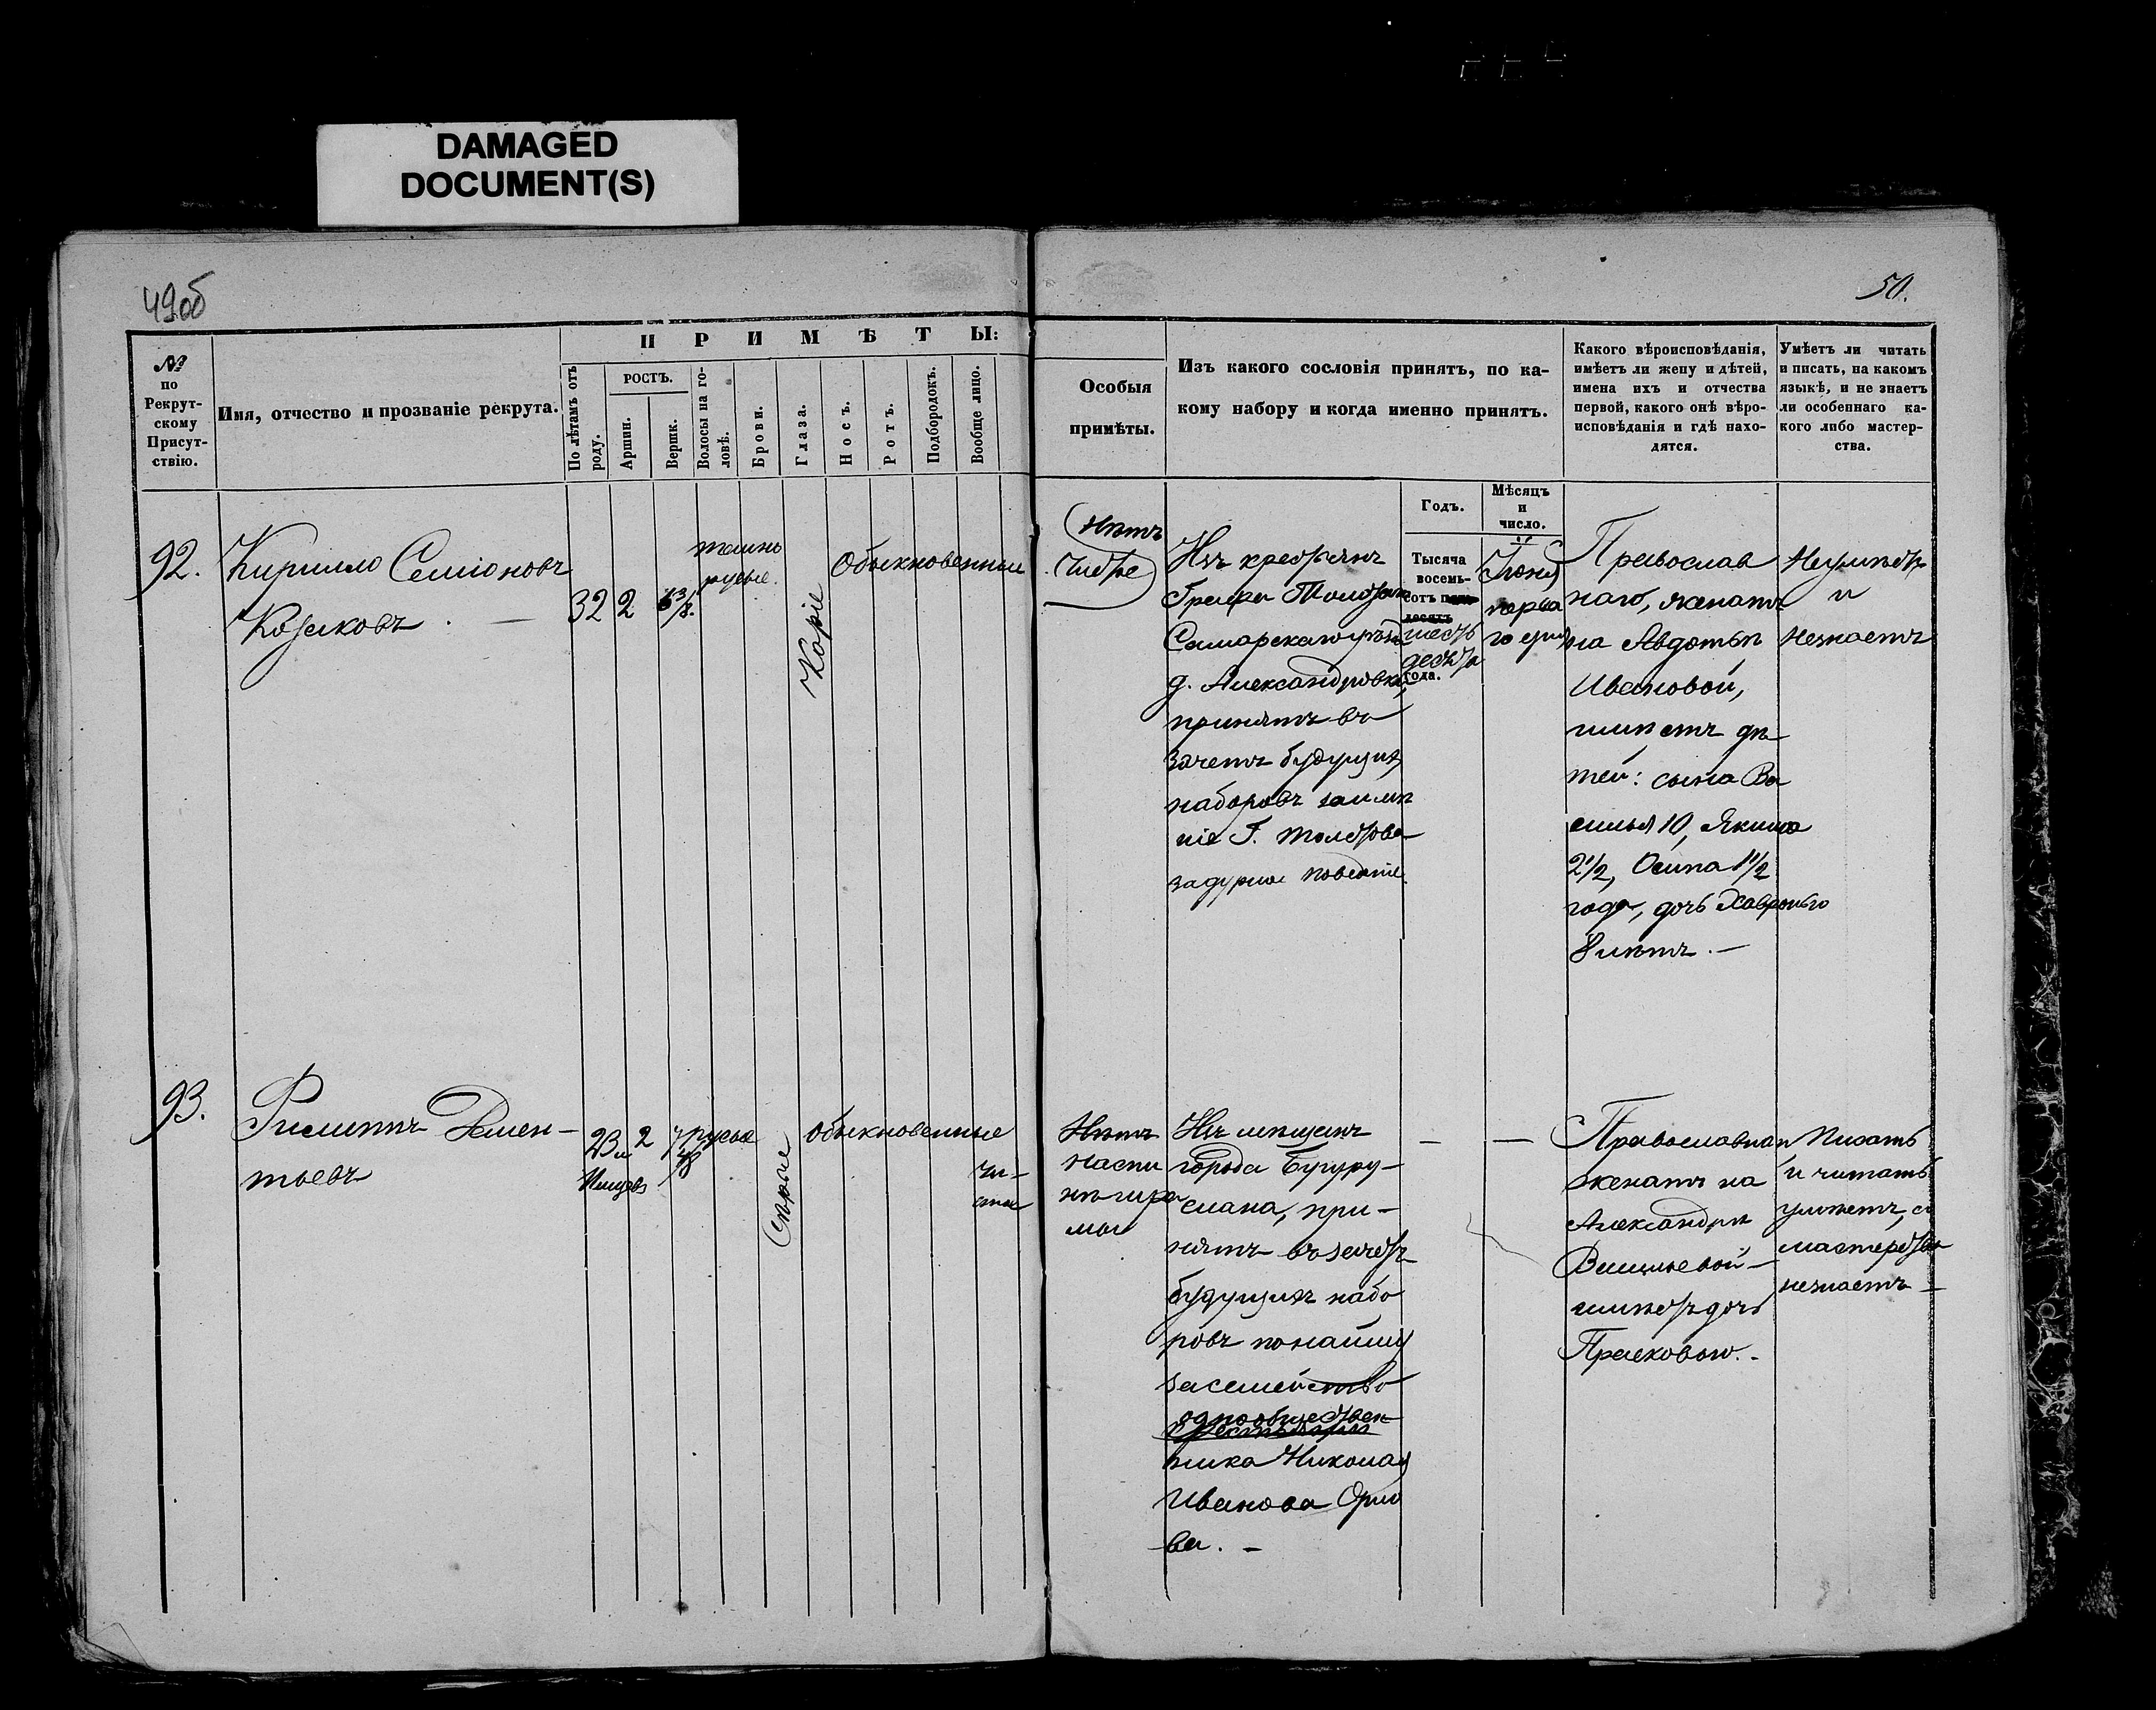 DAMAGED
DOCUMENT(S)
49об
50.
№
по
Рекрут-
скому
Присут-
ствію.
Имя, отчество и прозваніе рекрута.
П Р И М Ѣ Т Ы:
По лѣтамъ отъ
роду.
РОСТЪ.
Аршин.
Вершк.
Волосы на го-
ловѣ.
Брови.
Глаза.
Носъ.
Ротъ.
Подбородокъ.
Вообще лицо.
Особыя
примѣты.
Изъ какого сословія принятъ, по ка-
кому набору и когда именно принятъ.
Годъ.
Мѣсяцъ
и
число.
Какого вѣроисповѣданія,
имѣетъ ли жену и дѣтей,
имена ихъ и отчества
первой, какого онѣ вѣро-
исповѣданія и гдѣ нахо-
дятся.
Умѣетъ ли читать
и писать, на какомъ
языкѣ, и не знаетъ
ли особеннаго ка-
кого либо мастер-
ства.
92.
Кирилло Семіоновъ
Козаковъ
32
2
6 3/8.
темно
русые.
Каріе
Обыкновенные
Чистое
Нѣтъ
Изъ крестьянъ
Графа Толстаго
Самарскаго уѣзда
д. Александровки,
принятъ въ
зачетъ будущихъ
наборовъ заимѣ
ніе Г. Толстова
задурное поведеніе.
Тысяча
восемь-
сотъ
шесть
десятъ
года.
Іюня
перва
го
Православ
наго, женатъ
на Авдотьѣ
Ивановой,
имѣетъ дѣ
тей: сына Ва
силья 10, Якима
2 1/2, Осипа 1 1/2
года, дочь Хавронью
8 лѣтъ.—
Неумѣетъ
и
незнаетъ
93.
Филиппъ Демен-
тьевъ
23
2
7
русые
Сѣрые
Обыкновенные
чи-
стое
Нѣтъ
наспи
нѣ шра
мы
Изъ мѣщанъ
города Бугуру-
слана, при-
нятъ въ зачетъ
будущихъ набо
ровъ понайму
за семейство
однообществен
ника Николая
Иванова Орло
ва. —
— —
Православнаго
женатъ на
Александрѣ
Васильевой —
имѣетъ дочь
Прасковью.-
Писать
и читать
умѣетъ, а
мастерства
незнаетъ —